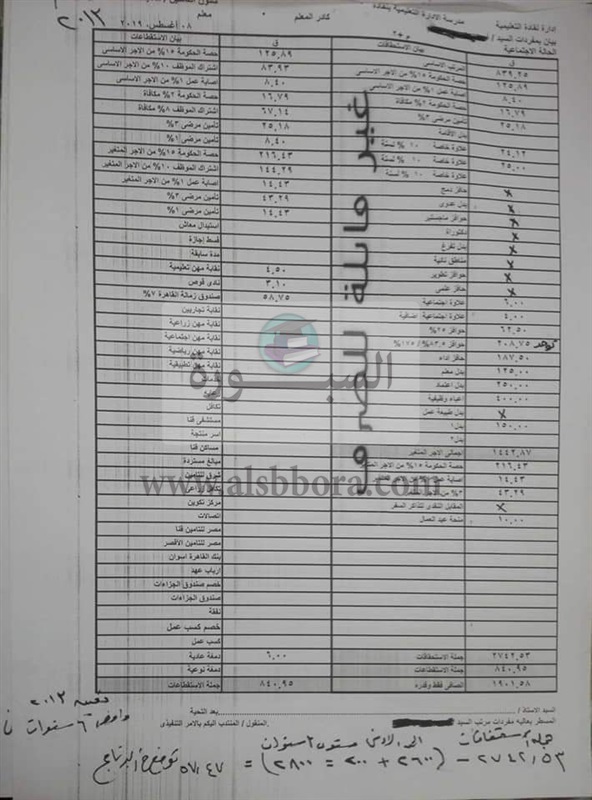 ٢٠١٣
ادارة نقادة التعليمية
مدرسة الادارة التعليمية بنقادة
كادر المعلم
معلم
٠٨ أغسطس، ٢٠١٩
بيان بمفردات السيد /
الحالة الاجتماعية
ق بيان الاستحقاقات
ق بيان الاستقطاعات
٨٣٩,٢٥ المرتب الاساسى
١٢٥,٨٩ حصة الحكومة ١٥% من الاجر الاساسى
١٢٥,٨٩ حصة الحكومة ١٥% من الاجر الاساسى
٨٣,٩٣ اشتراك الموظف ١٠% من الاجر الاساسى
٨,٤٠ اصابة عمل ١% من الاجر الاساسى
٨,٤٠ اصابة عمل ١% من الاجر الاساسى
١٦,٧٩ حصة الحكومة ٢% مكافأة
١٦,٧٩ حصة الحكومة ٢% مكافأة
٢٥,١٨ تأمين مرضى ٣%
٦٧,١٤ اشتراك الموظف ٨% مكافأة
بدل الاقامة
٢٥,١٨ تأمين مرضى ٣%
٢٤,١٢ علاوة خاصة ١٠% لسنة
٨,٤٠ تأمين مرضى ١%
٢٥,٠٠ علاوة خاصة ١٠% لسنة
٢١٦,٤٣ حصة الحكومة ١٥% من الاجر المتغير
علاوة خاصة ١٠% لسنة
١٤٤,٢٩ اشتراك الموظف ١٠% من الاجر المتغير
x حافز دمج
١٤,٤٣ اصابة عمل ١% من الاجر المتغير
x بدل عدوى
٤٣,٢٩ تأمين مرضى ٣%
x حوافز ماجستير
١٤,٤٣ تأمين مرضى ١%
x دكتوراة
استبدال معاش
x بدل تفرغ
قسط إجازة
x مناطق نائية
مدة سابقة
x حوافز تطوير
٤,٥٠ نقابة مهن تعليمية
x حافز علمى
٣,١٠ نادى قوص
٦,٠٠ علاوة اجتماعية
٥٨,٧٥ صندوق زمالة القاهرة ٧%
٤,٠٠ علاوة اجتماعية اضافية
نقابة تجاريين
٦٢,٥٠ حوافز ٢٥%
نقابة مهن زراعية
٢٠٨,٧٥ حوافز ٨٣,٥% / ١٧٥%
نقابة مهن اجتماعية
١٨٧,٥٠ حافز اداء
نقابة مهن رياضية
١٢٥,٠٠ بدل معلم
نقابة مهن تطبيقية
٢٥٠,٠٠ بدل اعتماد
٤٠٠,٠٠ اعباء وظيفية
x بدل طبيعة عمل
تكافل
١٥٠,٠٠ بدل١
مستشفى قنا
بدل٢
اسر منتجة
١٤٤٢,٨٧ اجمالى الاجر المتغير
مساكن قنا
٢١٦,٤٣ حصة الحكومة ١٥% من الاجر
مبالغ مستردة
١٤,٤٣ اصابة عمل
٤٣,٢٩ ٣% من الاجر
x المقابل النقدى لتذاكر السفر
مركز تكوين
١٠,٠٠ منحة عيد العمال
اتصالات
مصر للتامين قنا
مصر للتامين الأقصر
بنك القاهرة اسوان
ارباب عهد
خصم صندوق الجزاءات
صندوق الجزاءات
نفقة
خصم كسب عمل
كسب عمل
٢٧٤٢,٥٣ جملة الاستحقاقات
٦,٠٠ دمغة عادية
٨٤٠,٩٥ جملة الاستقطاعات
دمغة نوعية
١٩٠١,٥٨ الصافى فقط وقدره
٨٤٠,٩٥ جملة الاستقطاعات
غير قابلة للصرف
السبورة
www.alsbbora.com
السيد الاستاذ /
بعد التحية
المسطر بعاليه مفردات مرتب السيد
المنقول / المنتدب اليكم بالامر التنفيذى
٢٠١٣
٦ سنوات
الحد الادنى
٢٧٤٢,٥٣ − (٢٨٠٠ = ٢٠٠ + ٢٦٠٠) = ٥٧,٤٧